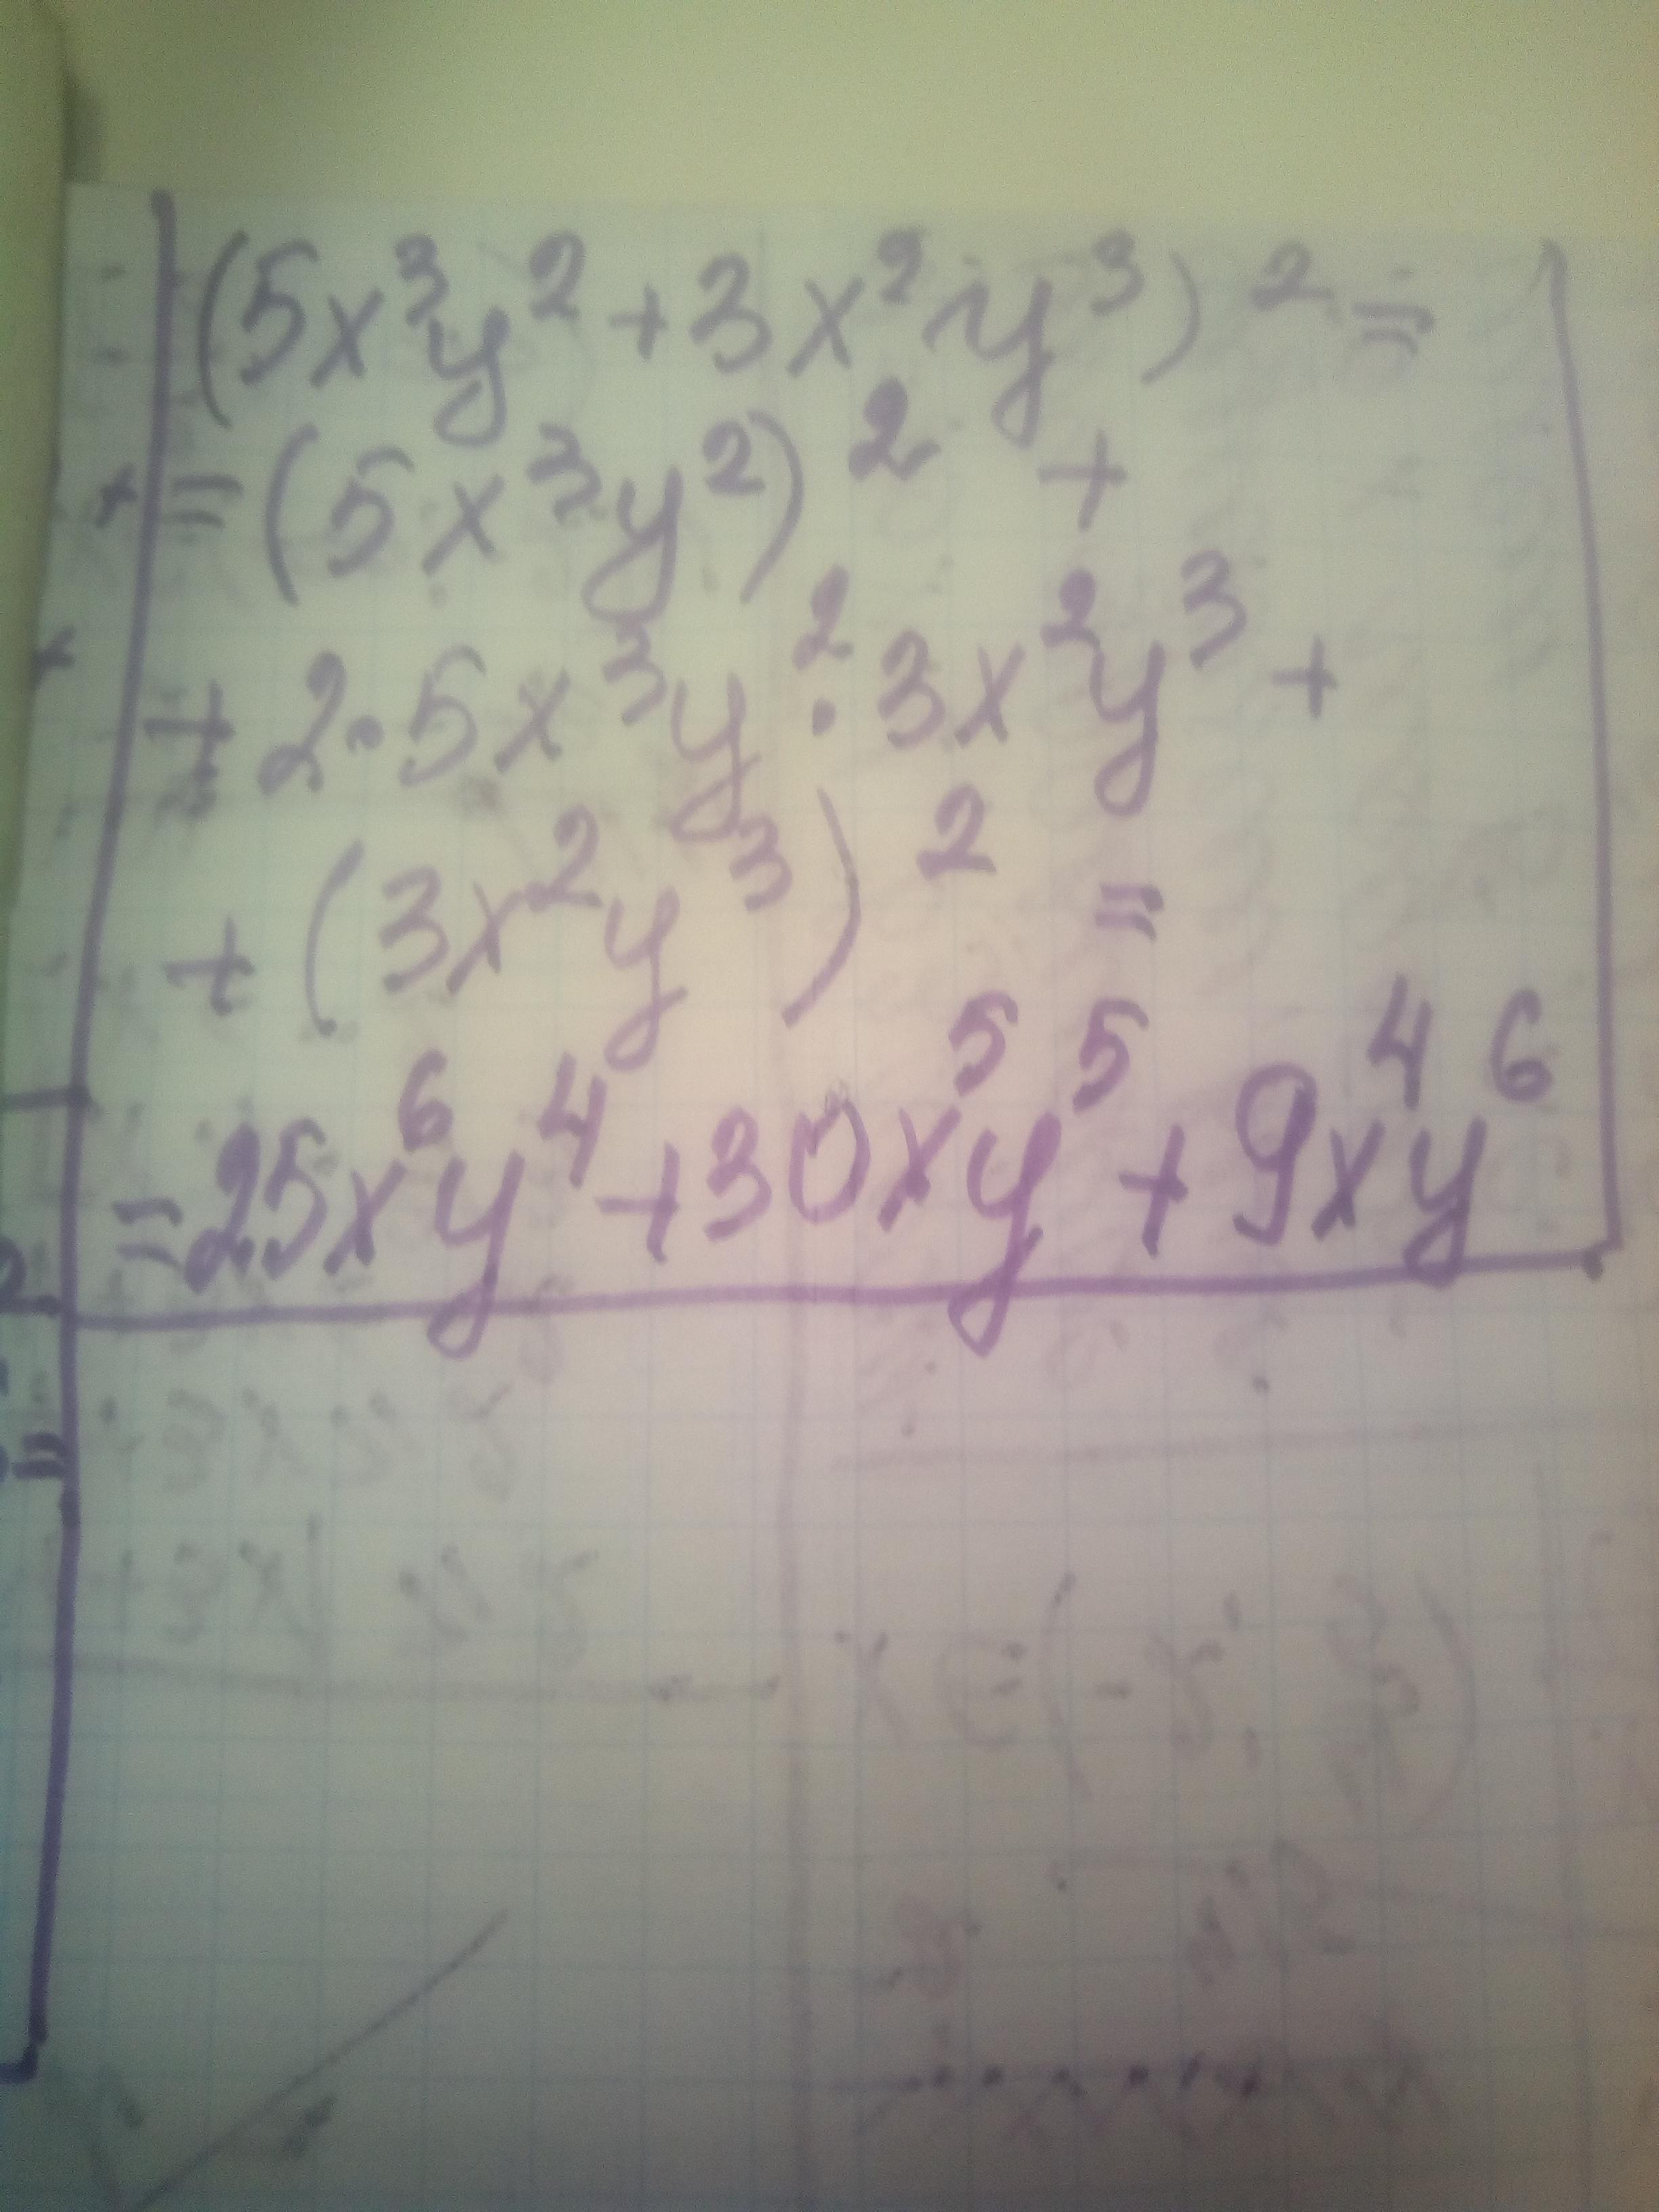 (5x³y²+3x²y³)²=
=(5x³y²)²+
+2·5x³y²·3x²y³+
+(3x²y³)²=
=25x⁶y⁴+30x⁵y⁵+9x⁴y⁶